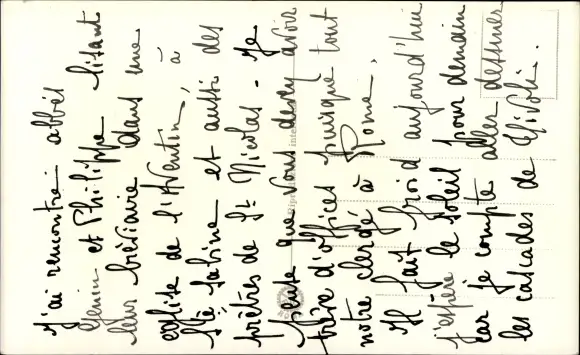 J'ai rencontré abbés
Genin et Philippe lisant
leur bréviaire dans une
église de l'Aventin, à
Ste Sabine et aussi des
prêtres de St Nicolas. Je
pense que vous devez avoir
trève d'offices puisque tout
notre clergé à Rome.
Il fait froid aujourd'hui
j'espère le soleil pour demain
car je compte aller dessiner
les cascades de Tivoli.